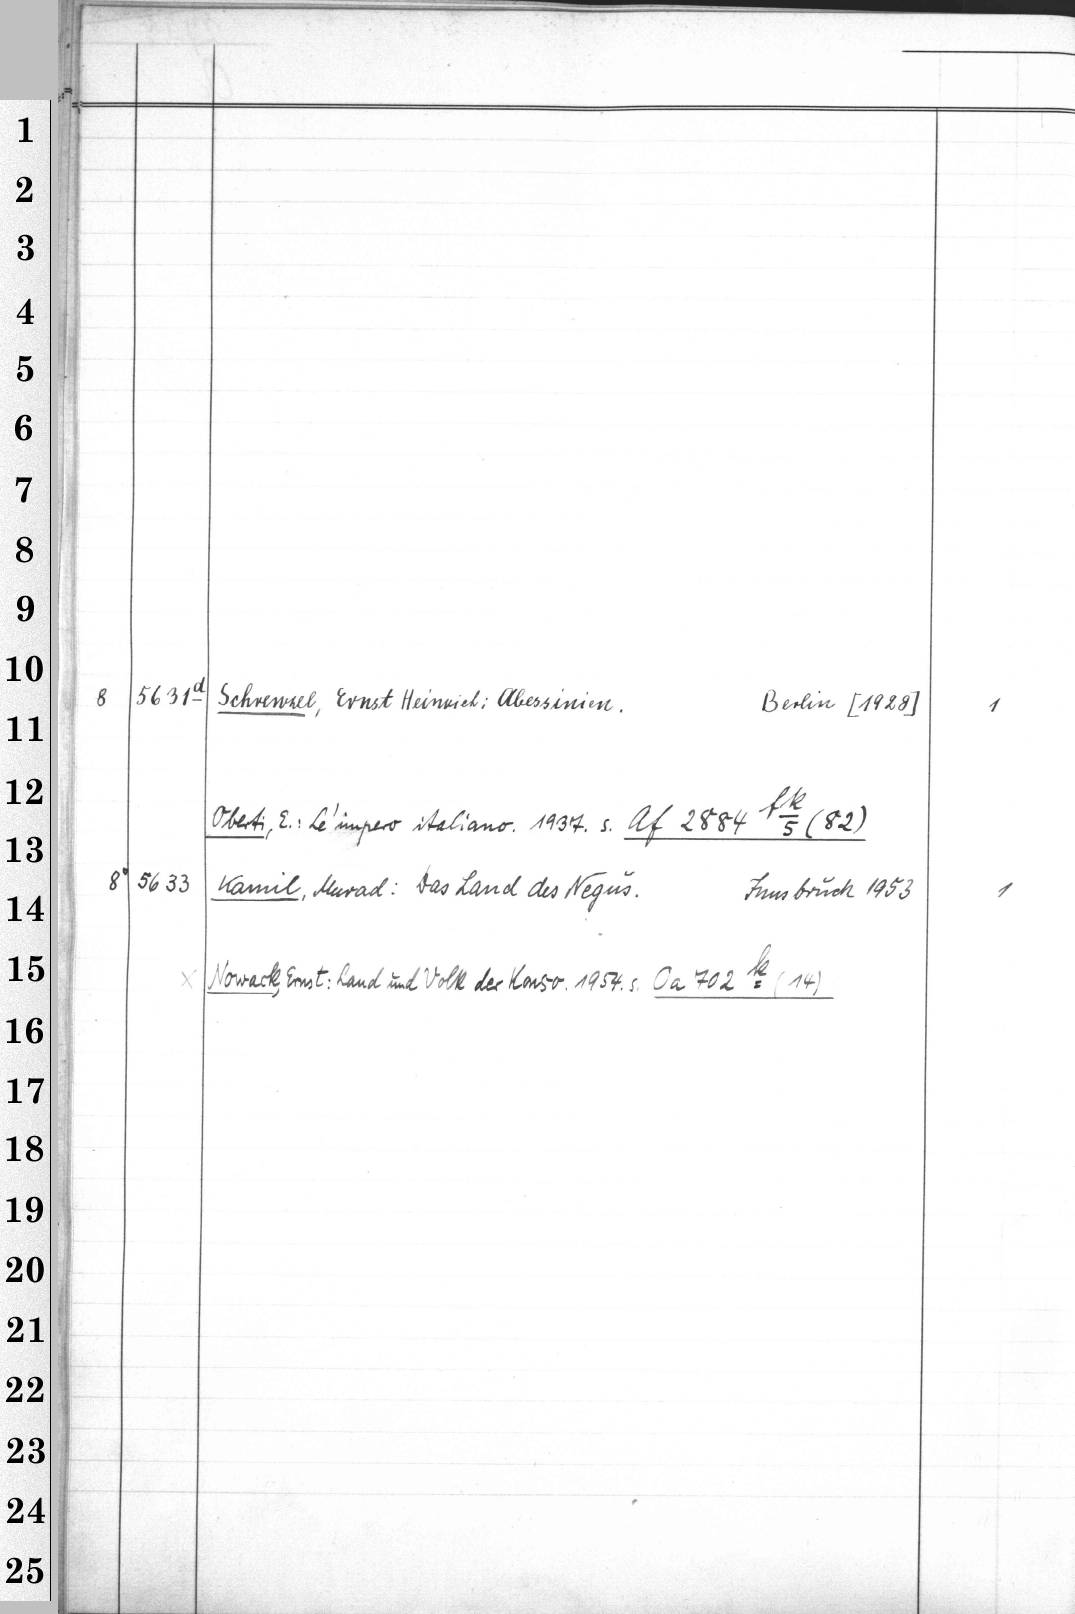 1
2
3
4
5
6
7
8
9
10
8 5631d Schrenzel, Ernst Heinrich: Abessinien. Berlin [1928] 1
11
12
Oberti, E.: Le'impero italiano. 1937. s. Af 2884 fk/5 (82)
13
8° 5633 Kamil, Murad: Das Land des Negus. Innsbruck 1953 1
14
15
x Nowack, Ernst: Land und Volk der Konso. 1954. s. Oa 702 k (14)
16
17
18
19
20
21
22
23
24
25